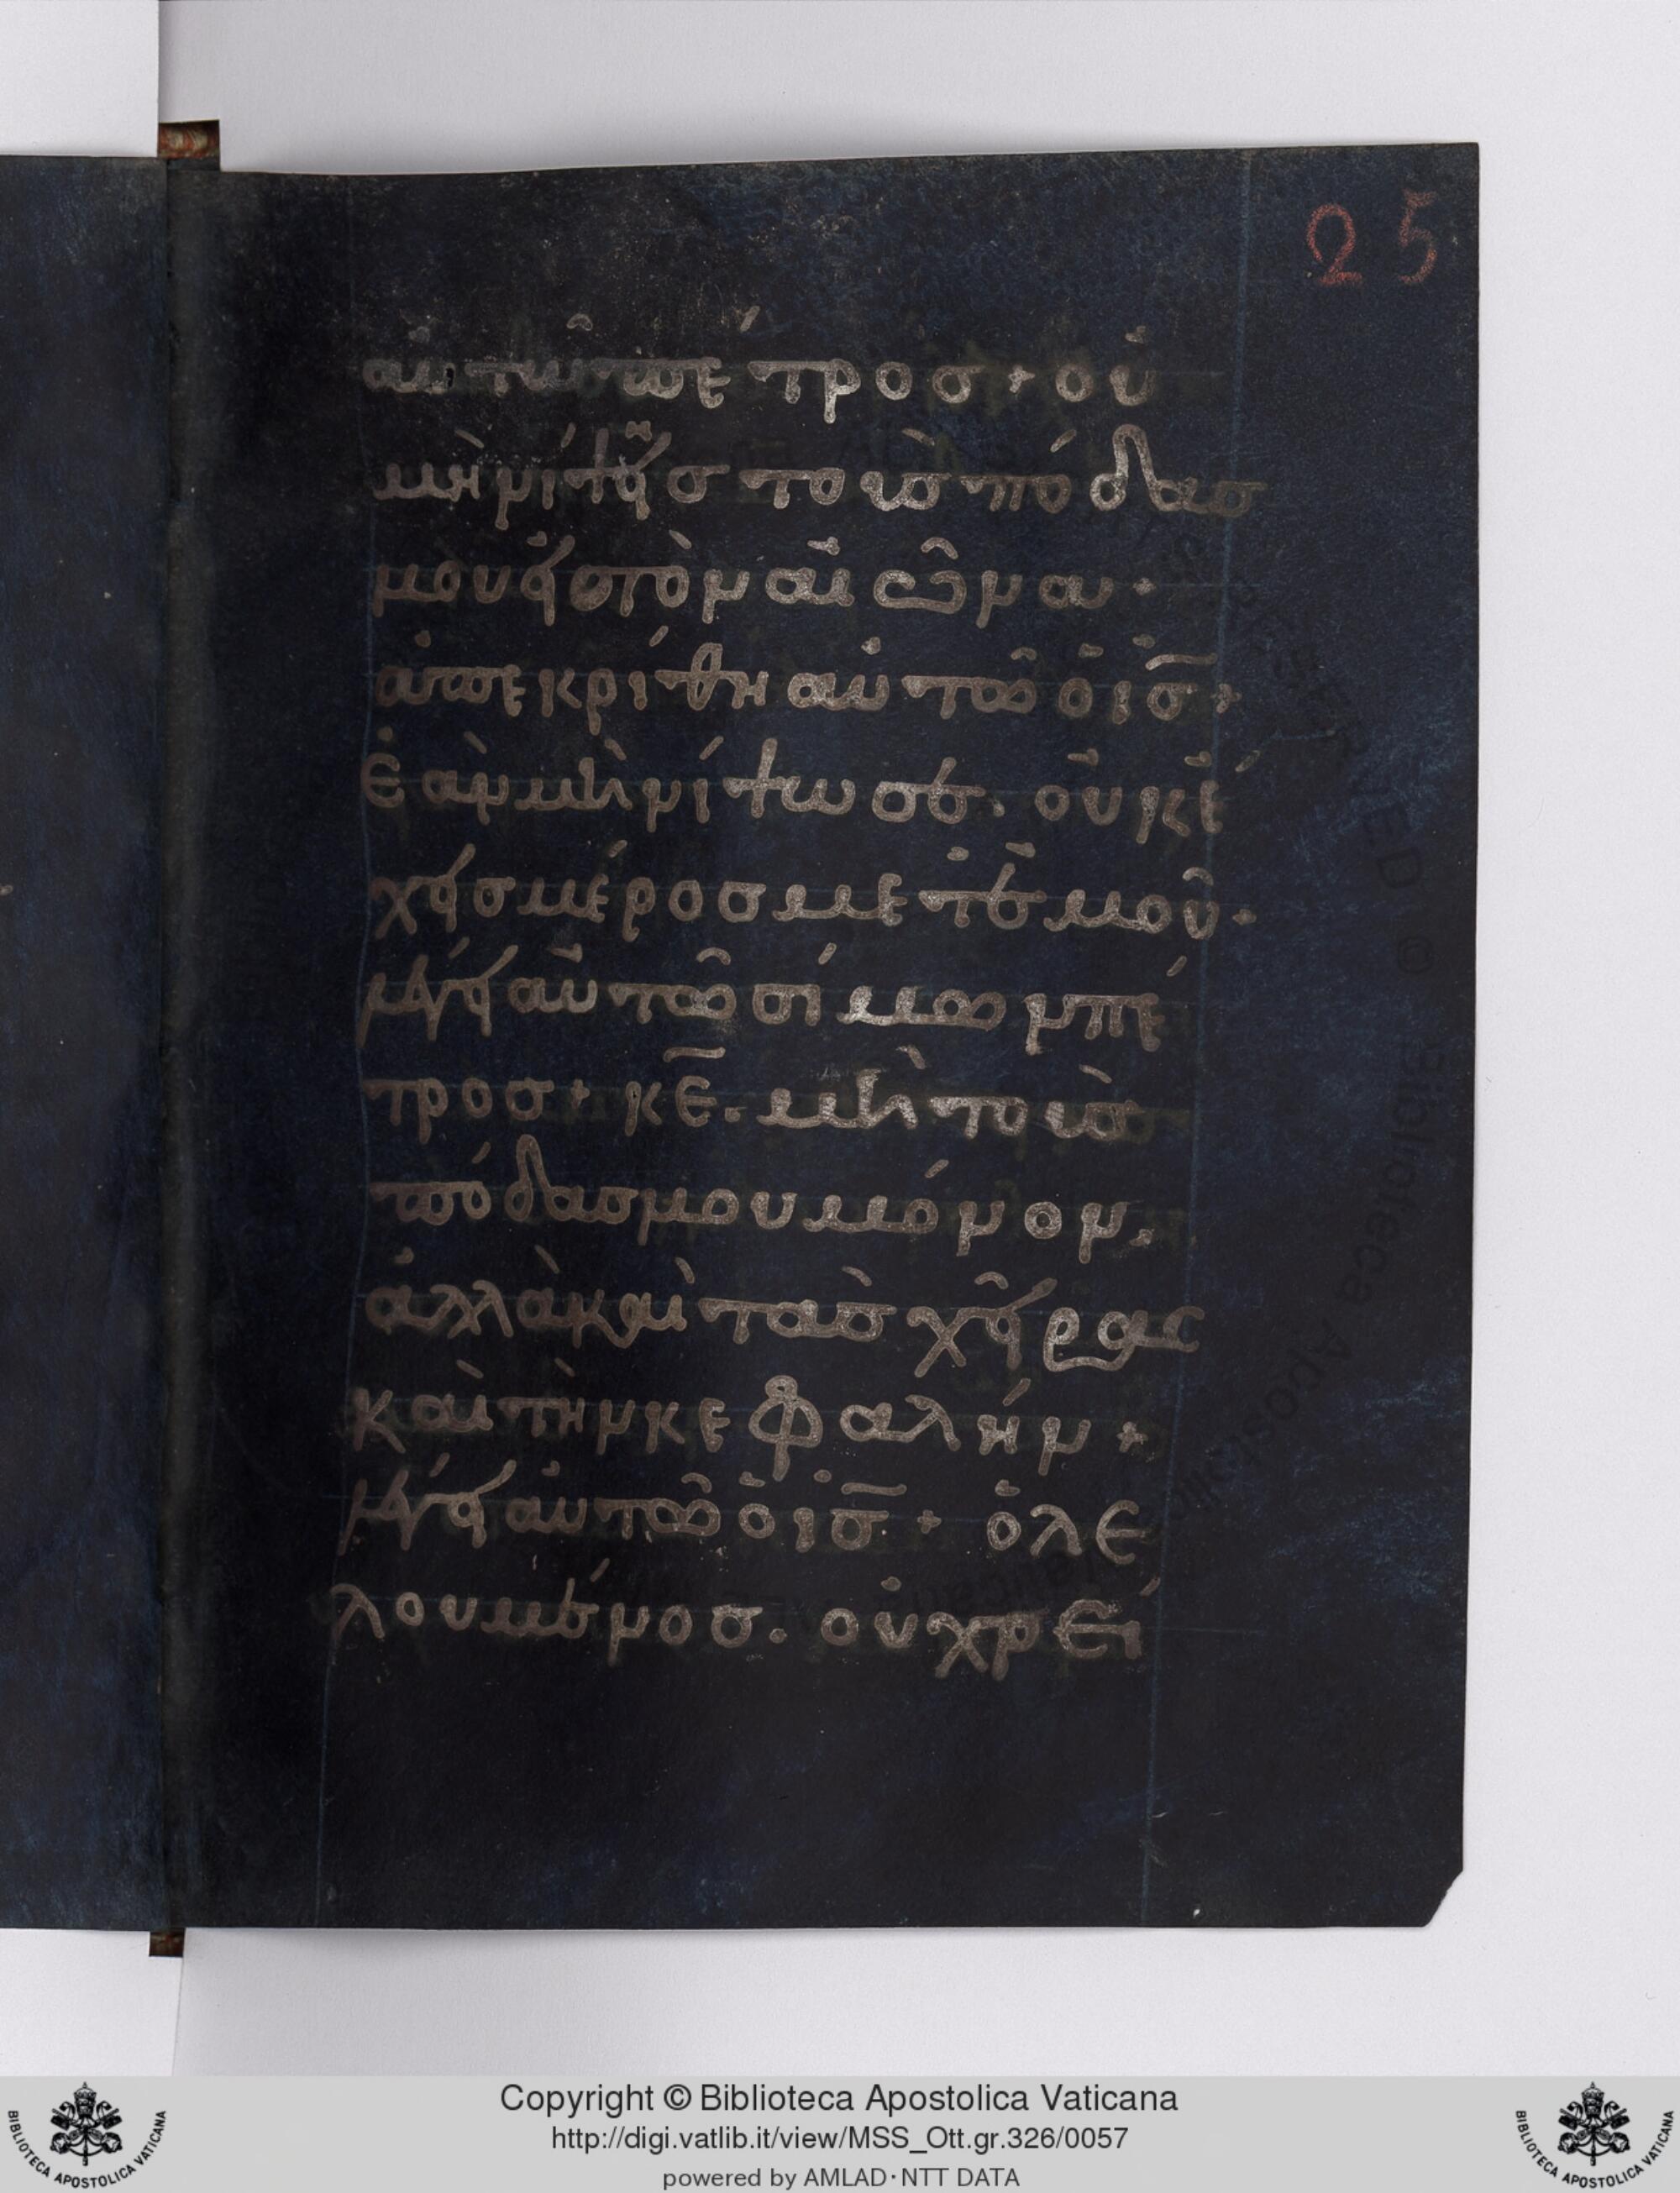 25
αὐτῶ πέτρος + οὐ
μὴ νίψῃς τοὺς πόδας
μου εἰς τὸν αἰῶνα ·
ἀπεκρίθη αὐτῶ ὁ ις̅ +
ἐὰν μὴ νίψω σε . οὐκ ἔ
χεις μέρος μετ' ἐμοῦ ·
λέγει αὐτῶ σίμων πέ
τρος + κε̅ . μὴ τοὺς
πόδας μου μόνον .
ἀλλὰ καὶ τὰς χεῖρας
καὶ τὴν κεφαλήν +
λέγει αὐτῶ ὁ ις̅ + ὁ λε
λουμένος . οὐ χρεί
Copyright © Biblioteca Apostolica Vaticana
http://digi.vatlib.it/view/MSS_Ott.gr.326/0057
powered by AMLAD·NTT DATA
BIBLIOTECA APOSTOLICA VATICANA
BIBLIOTECA APOSTOLICA VATICANA